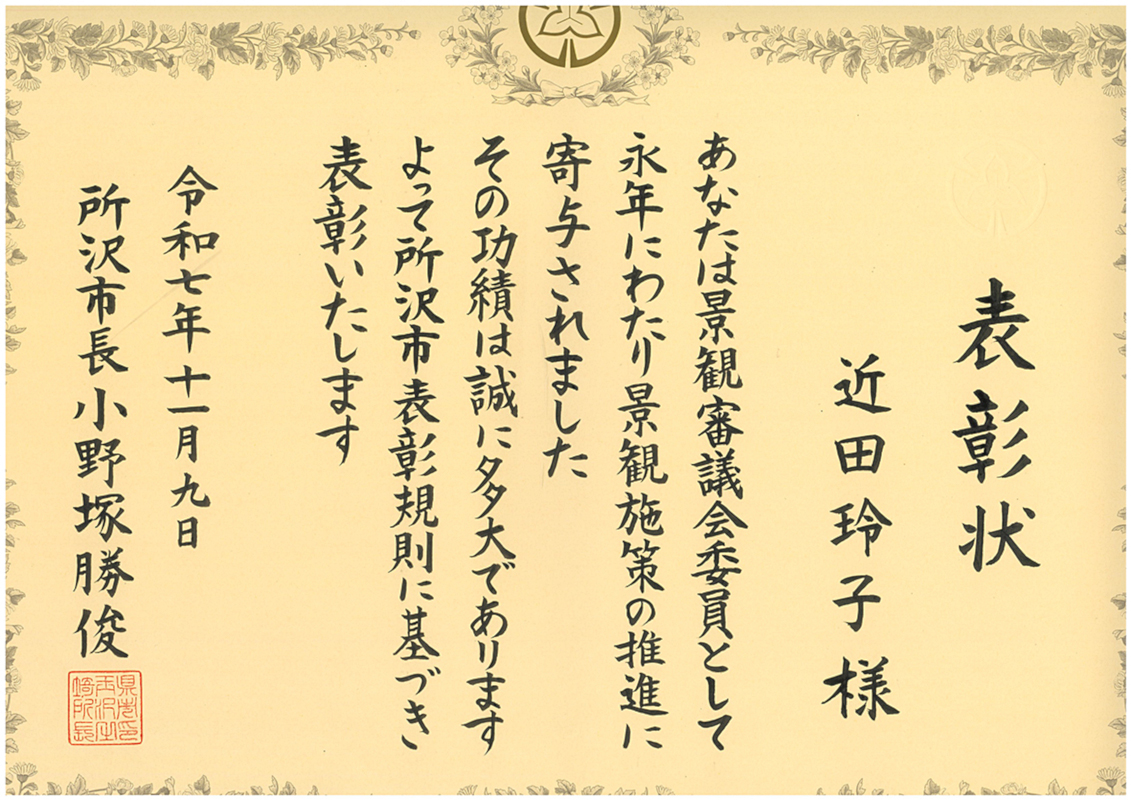 表彰状
近田玲子様
あなたは景観審議会委員として
永年にわたり景観施策の推進に
寄与されました
その功績は誠に多大であります
よって所沢市表彰規則に基づき
表彰いたします
令和七年十一月九日
所沢市長小野塚勝俊